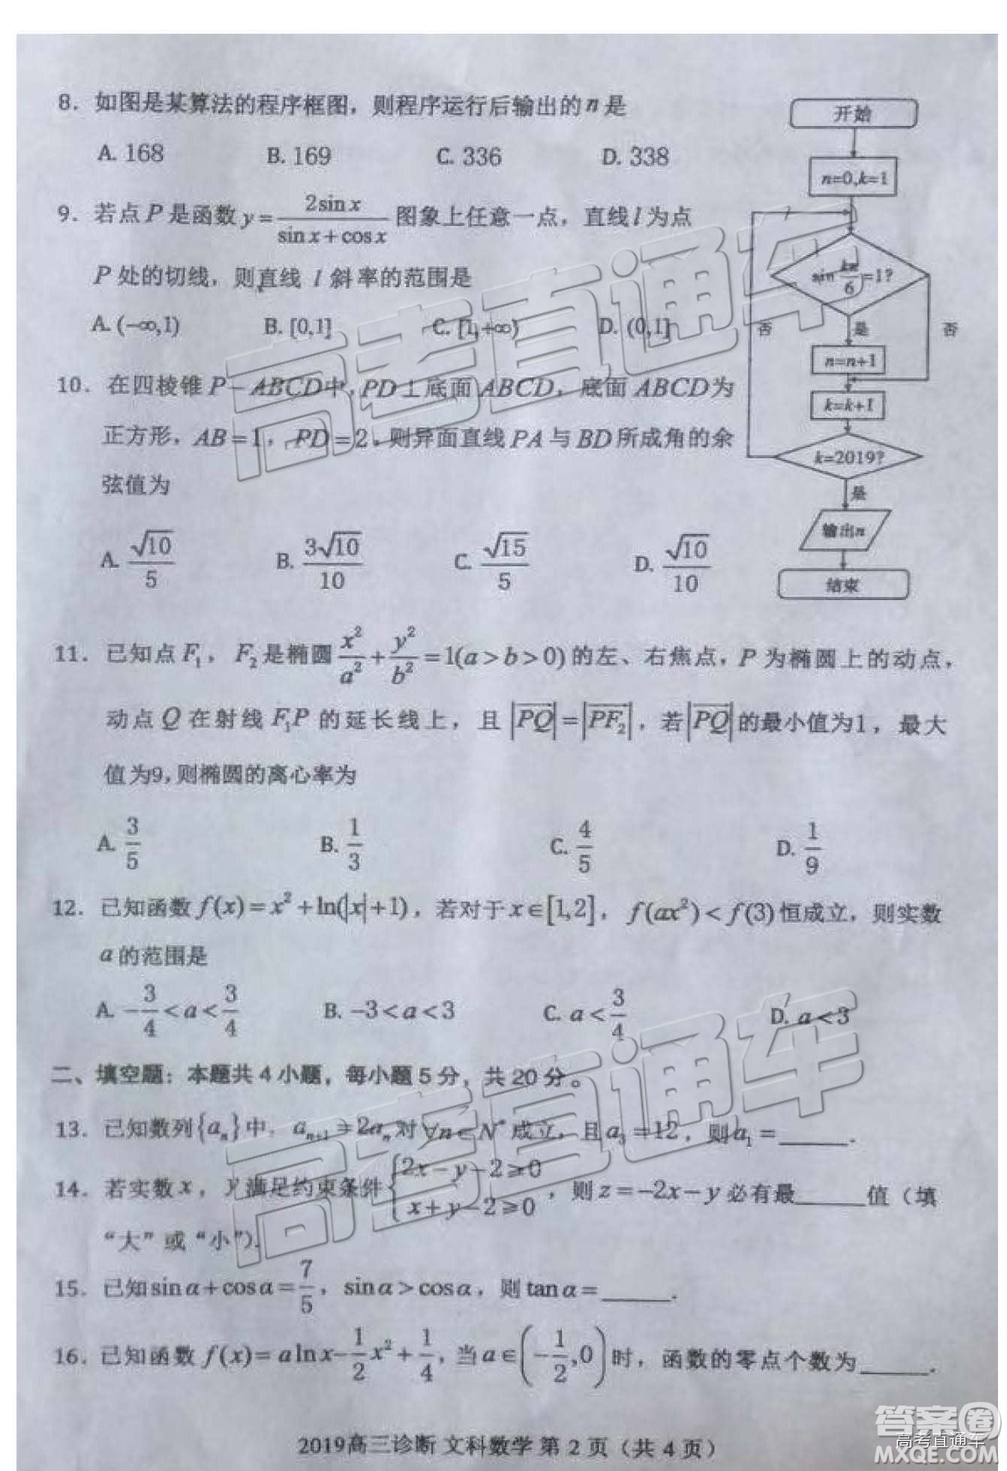 8．如图是某算法的程序框图，则程序运行后输出的 n 是
A. 168 B. 169 C. 336 D. 338
9．若点 P 是函数 y = 2sin x / (sin x + cos x) 图象上任意一点，直线 l 为点
P 处的切线，则直线 l 斜率的范围是
A. (−∞,1) B. [0,1] C. [1,+∞) D. (0,1]
10．在四棱锥 P−ABCD 中，PD⊥底面 ABCD，底面 ABCD 为
正方形，AB=1，PD=2，则异面直线 PA 与 BD 所成角的余
弦值为
A. √10/5 B. 3√10/10 C. √15/5 D. √10/10
开始
n=0,k=1
sin kπ/6 =1?
否 是 否
n=n+1
k=k+1
k=2019?
是
输出n
结束
11．已知点 F₁，F₂ 是椭圆 x²/a² + y²/b² = 1(a>b>0) 的左、右焦点，P 为椭圆上的动点，
动点 Q 在射线 F₁P 的延长线上，且 |PQ|=|PF₂|，若 |PQ| 的最小值为1，最大
值为9，则椭圆的离心率为
A. 3/5 B. 1/3 C. 4/5 D. 1/9
12．已知函数 f(x)=x²+ln(|x|+1)，若对于 x∈[1,2]，f(ax²)<f(3) 恒成立，则实数
a 的范围是
A. −3/4<a<3/4 B. −3<a<3 C. a<3/4 D. a<3
二、填空题：本题共 4 小题，每小题 5 分，共 20 分。
13．已知数列{aₙ}中，aₙ₊₁=2aₙ 对 ∀n∈N* 成立，且 a₃=12，则 a₁=_____.
14．若实数 x，y 满足约束条件 {2x−y−2≥0
x+y−2≥0，则 z=−2x−y 必有最______值（填
“大”或“小”）.
15．已知 sin α+cos α=7/5，sin α>cos α，则 tan α=_____.
16．已知函数 f(x)=a ln x−1/2 x²+1/4，当 a∈(−1/2,0) 时，函数的零点个数为_____.
2019高三诊断 文科数学 第 2 页（共 4 页）
高考直通车
高考直通车
答案卷
高考直通车
MXQE.COM